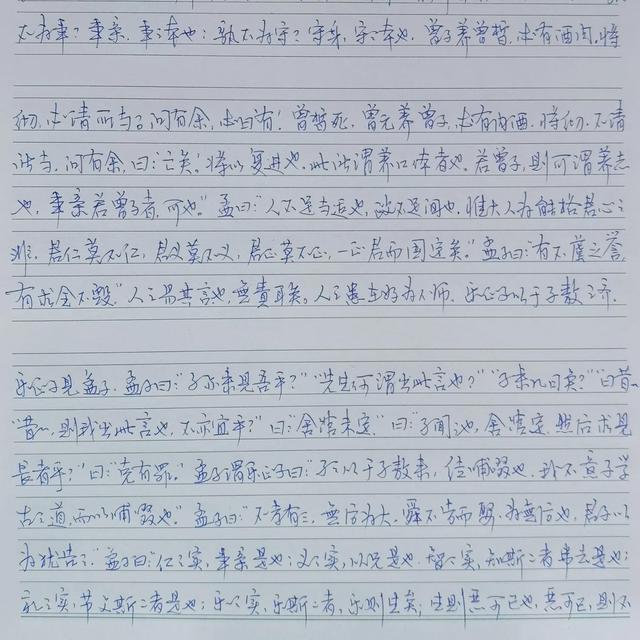 不为事？事亲，事之本也；孰不为守？守身，守之本也。曾子养曾皙，必有酒肉，将
彻，必请所与；问有余，必曰有！曾皙死，曾元养曾子，必有肉酒，将彻，不请
所与，问有余，曰：亡矣。将以复进也，此所谓养口体者也。若曾子，则可谓养志
也，事亲若曾子者，可也。”孟曰：“人不足与适也，政不足间也，惟大人为能格君心之
非，君仁莫不仁，君义莫不义，君正莫不正，一正君而国定矣。”孟子曰：“有不虞之誉，
有求全不毁。”人之易其言也，無責耳矣。人之患在好为人师。乐正子从于子敖之齐，
乐正子见孟子，孟子曰：“子亦来见吾乎？”“先生何谓出此言也？”“子来几日矣？”曰昔
“昔，则我出此言也，不亦宜乎？”曰：“舍馆未定。”曰：“子闻之也，舍馆定，然后求见
長者乎？”曰：“克有罪。”孟子谓乐正子曰：“子之从于子敖来，徒哺啜也，我不意子学
古之道，而以哺啜也。”孟子曰：“不孝有三，無后为大，舜不告而娶，为無后也，君子以
为犹告之。”孟子曰：“仁之实，事亲是也；义之实，从兄是也，智之实，知斯二者弗去是也；
礼之实，节文斯二者是也；乐之实，乐斯二者，乐则生矣；生则恶可已也，恶可已，则不